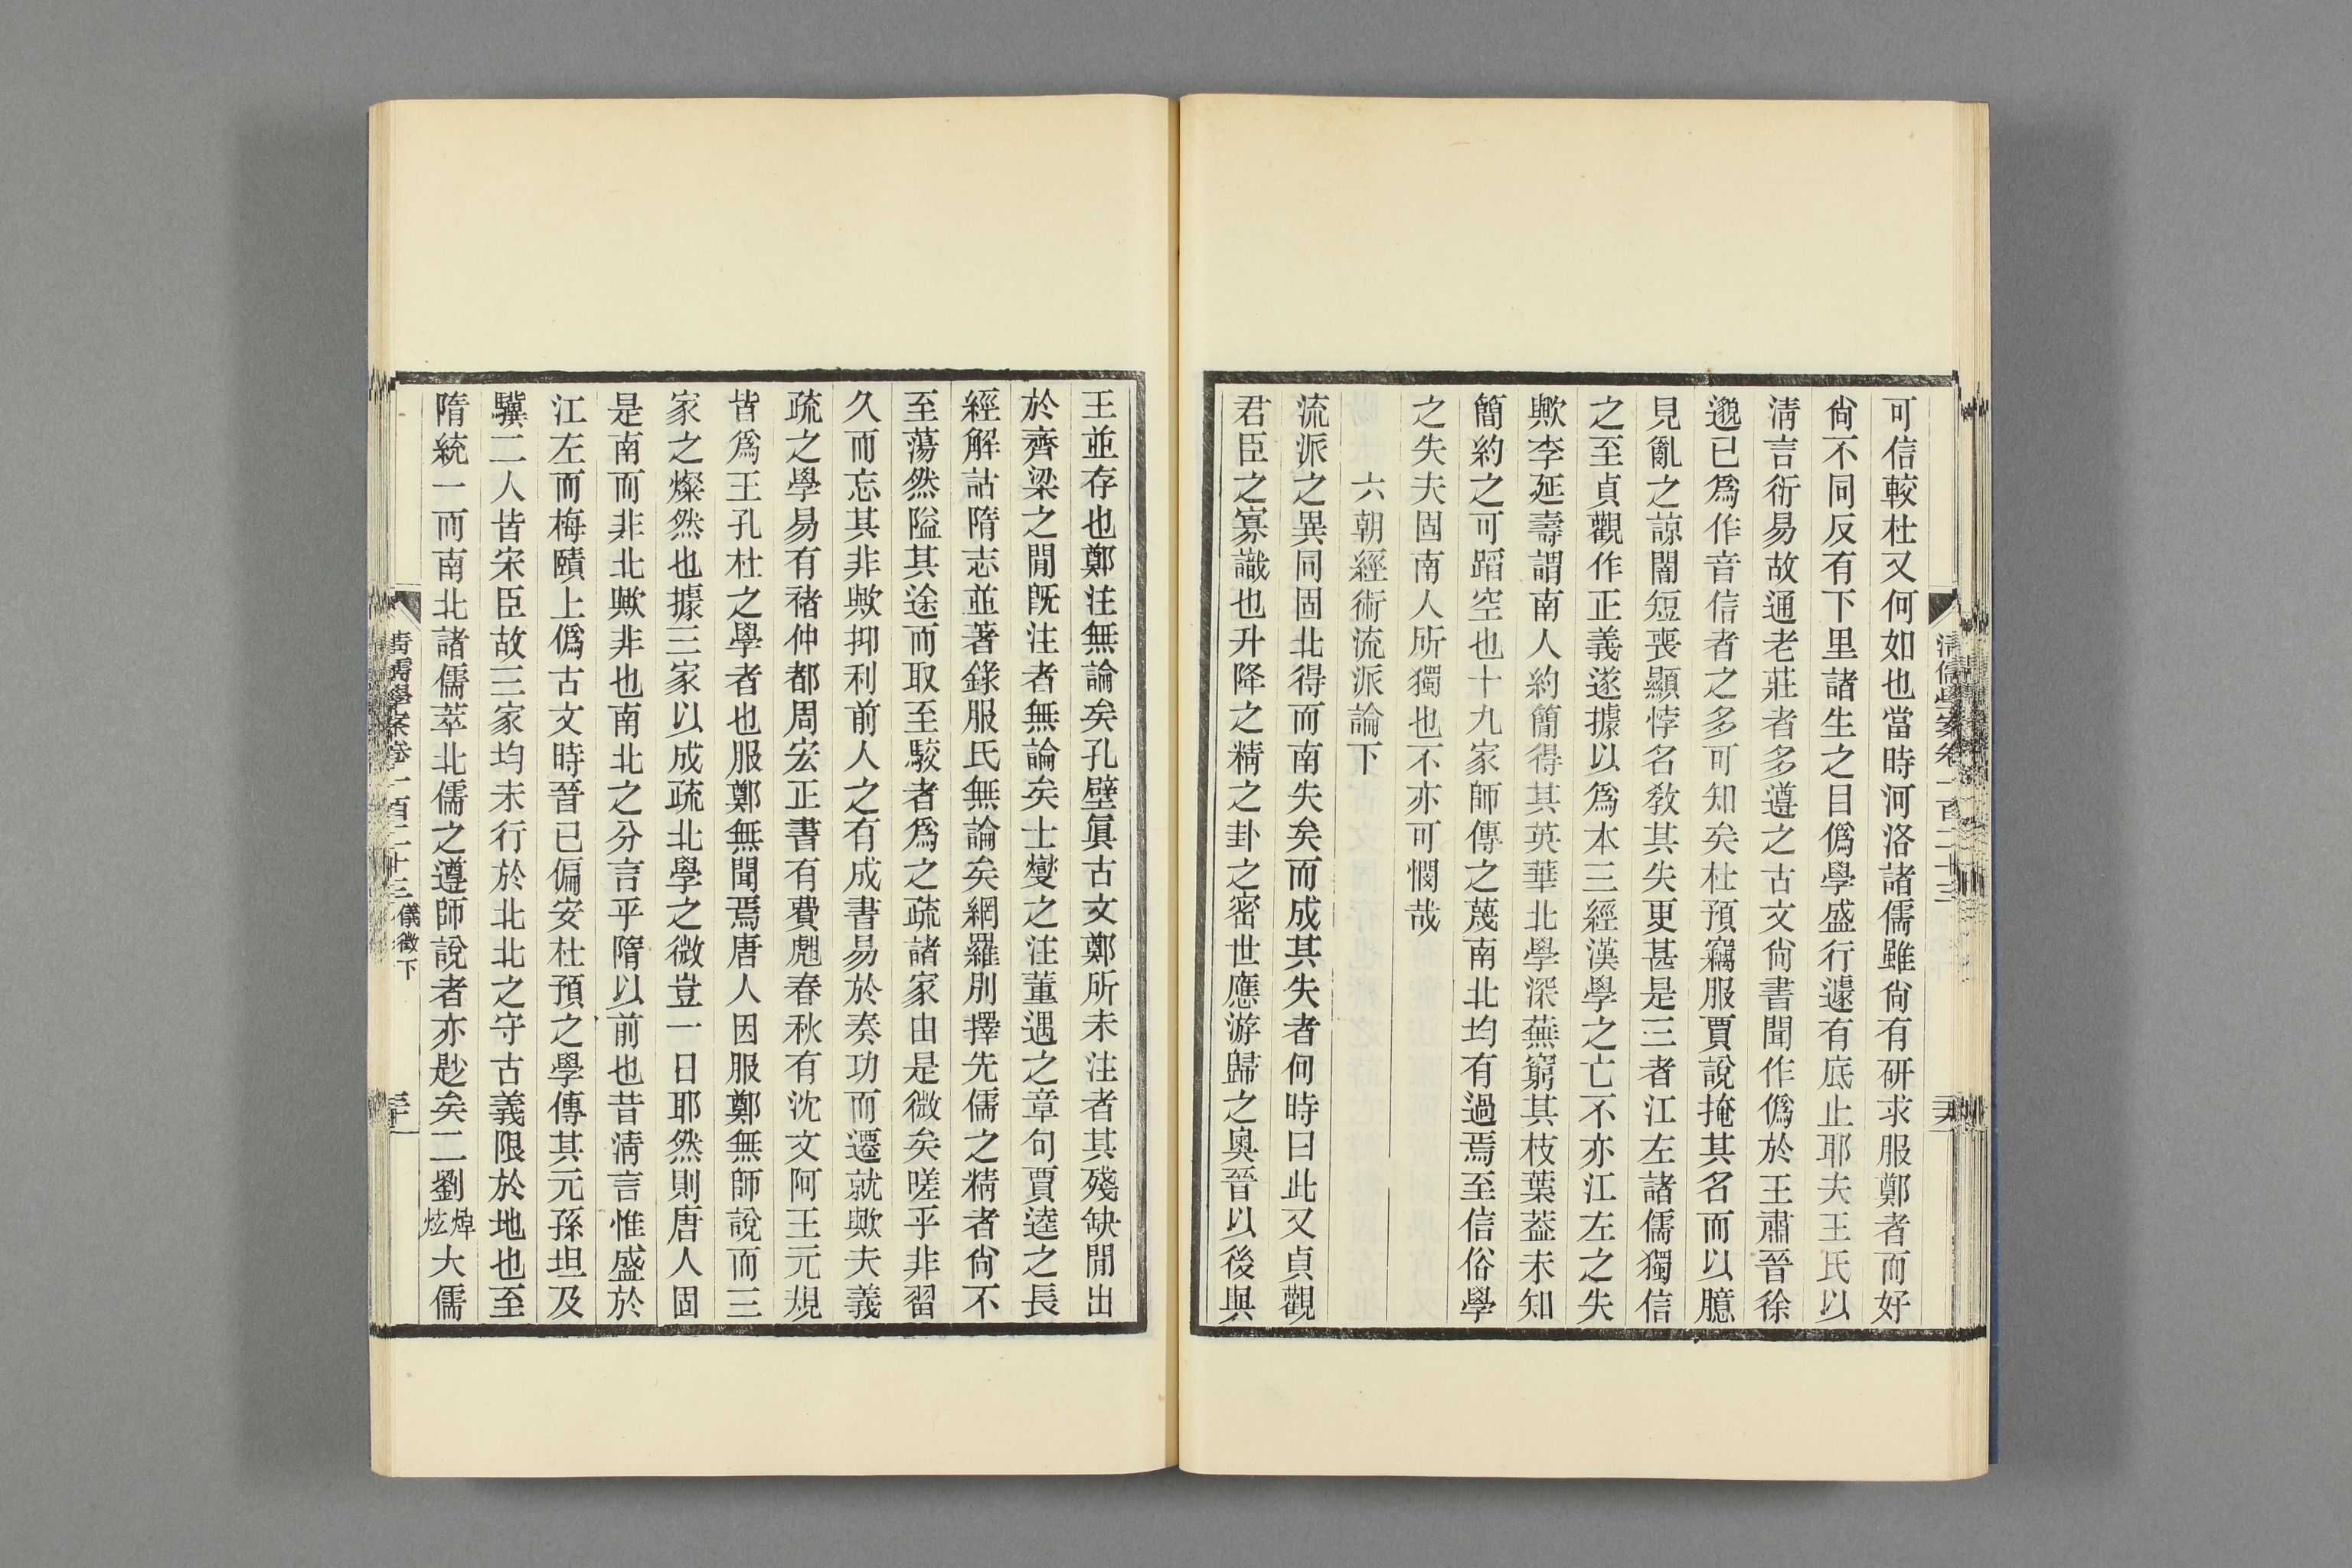 可信較杜又何如也當時河洛諸儒雖尙有研求服鄭者而好
尙不同反有下里諸生之目僞學盛行遽有底止耶夫王氏以
淸言衍易故通老莊者多遵之古文尙書聞作僞於王肅晉徐
邈已爲作音信者之多可知矣杜預竊服賈說掩其名而以臆
見亂之諒闇短喪顯悖名敎其失更甚是三者江左諸儒獨信
之至貞觀作正義遂據以爲本三經漢學之亡不亦江左之失
歟李延壽謂南人約簡得其英華北學深蕪窮其枝葉葢未知
簡約之可蹈空也十九家師傳之蔑南北均有過焉至信俗學
之失夫固南人所獨也不亦可憫哉
六朝經術流派論下
流派之異同固北得而南失矣而成其失者何時曰此又貞觀
君臣之寡識也升降之精之卦之密世應游歸之奧晉以後與
淸儒學案卷一百二十三
王並存也鄭注無論矣孔壁眞古文鄭所未注者其殘缺閒出
於齊梁之閒旣注者無論矣士燮之注董遇之章句賈逵之長
經解詁隋志並著錄服氏無論矣網羅別擇先儒之精者尙不
至蕩然隘其途而取至駁者爲之疏諸家由是微矣嗟乎非習
久而忘其非歟抑利前人之有成書易於奏功而遷就歟夫義
疏之學易有褚仲都周宏正書有費甝春秋有沈文阿王元規
皆爲王孔杜之學者也服鄭無聞焉唐人因服鄭無師說而三
家之燦然也據三家以成疏北學之微豈一日耶然則唐人固
是南而非北歟非也南北之分言乎隋以前也昔淸言惟盛於
江左而梅賾上僞古文時晉已偏安杜預之學傳其元孫坦及
驥二人皆宋臣故三家均未行於北北之守古義限於地也至
隋統一而南北諸儒萃北儒之遵師說者亦尟矣二劉焯炫大儒
淸儒學案卷一百二十三 儀徵下